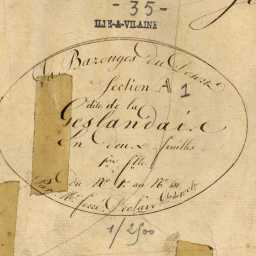 - 35 -
ILLE-&-VILAINE
La Bazouges du Désert
Section A 1
dite de la
Geslandais
En deux feuilles
1re f.lle
du N.o 1.er au N.o
1/2500